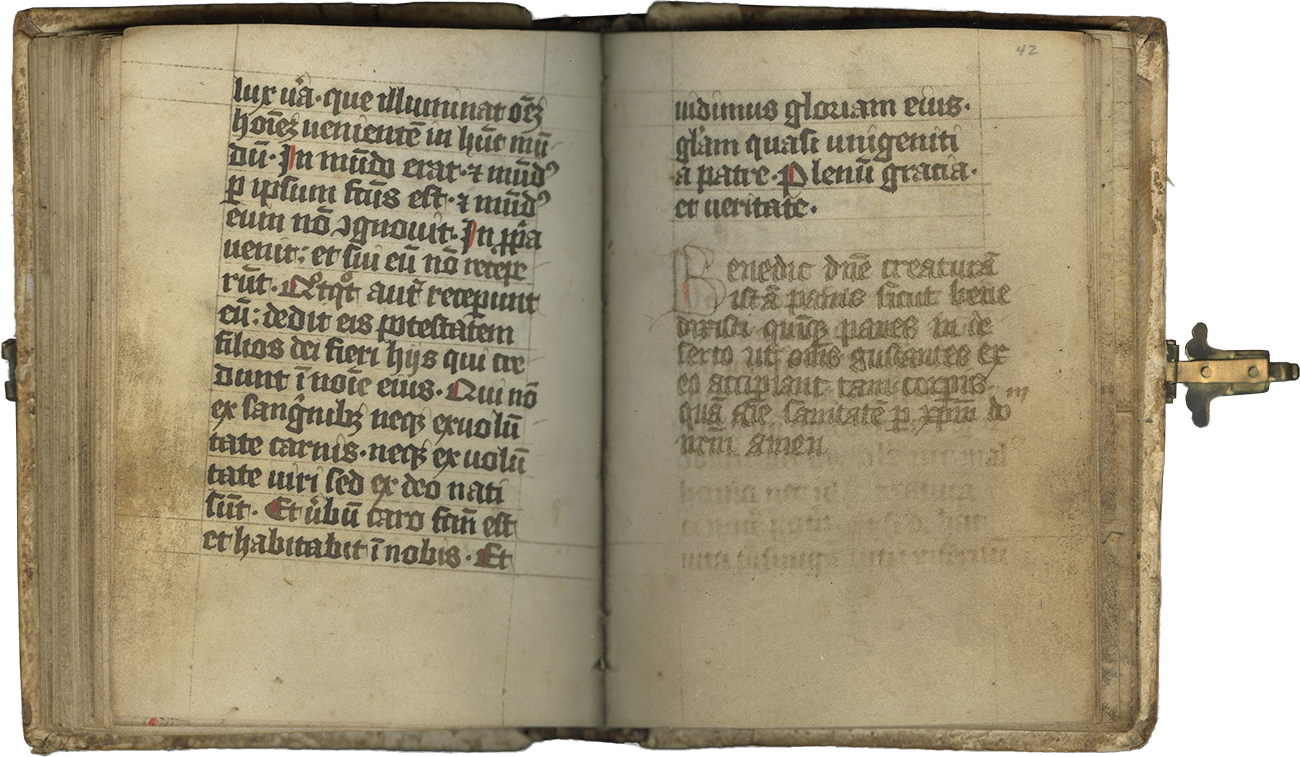 lux ũa · que illuminat oẽz
hoĩez uenientẽ in hũc mũ
dũ · In mũdo erat · ⁊ mũdꝰ
ꝑ ipsum fc̃us est · ⁊ mũdꝰ
eum nõ ↄgnouit · In ꝓp̃a
uenit : et sui eũ nõ recepe
rũt · Qͦtqͦt aut̃ receperunt
eũ : dedit eis potestatem
filios dei fieri hijs qui cre
dunt ĩ noĩe eius · Qui nõ
ex sanguĩbꝫ neqꝫ ex uolũ
tate carnis · neqꝫ ex uolũ
tate uiri sed ex deo nati
sũt · Et ũbũ caro fc̃m est
et habitabit ĩ nobis · Et
42
uidimus gloriam eius ·
gl̃am quasi unigeniti
a patre · Plenũ gracia ·
et ueritate ·
Benedic dñe creaturã
istã panis sicut bene
dixisti quinqꝫ panes in de
serto ut oẽs gustantes ex
eo accipiant tam corporis
quã aĩe sanitatẽ ꝑ xp̃m do
nrm̃ amen